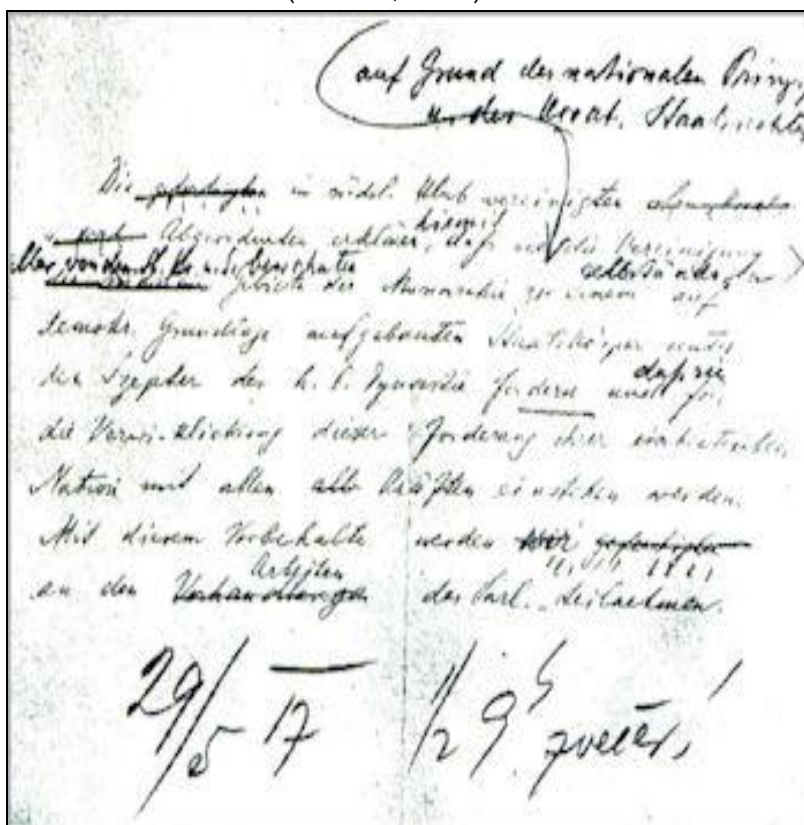 auf Grund des nationalen Prinz.
u. der kroat. Staatsrechtes
Die gefertigten in südsl. Klub vereinigten
Abgeordneten erklären, daß die Vereinigung
hiemit
aller von den S. Kr. u. Sl. bewohnten
selbständigen
Gebiete der Monarchie zu einem auf
demokr. Grundlage aufgebauten Staatskörper unter
den Szepter der h. l. Dynastie fordern und für
daß sie
die Verwirklichung dieser Forderung ihrer einheitlichen
Nation mit allen Kräften einstehen werden.
Mit diesem Vorbehalte werden wir gefertigten
Arbeiten
an den Verhandlungen des Parl. teilnehmen.
29/5 17 1/2 9h zvečer